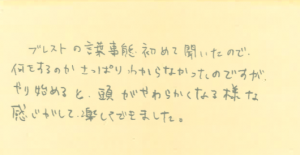 ブレストの言葉事態、初めて聞いたので、
何をするのかさっぱりわからなかったのですが、
やり始めると、頭がやわらかくなる様な
感じがして、楽しくできました。